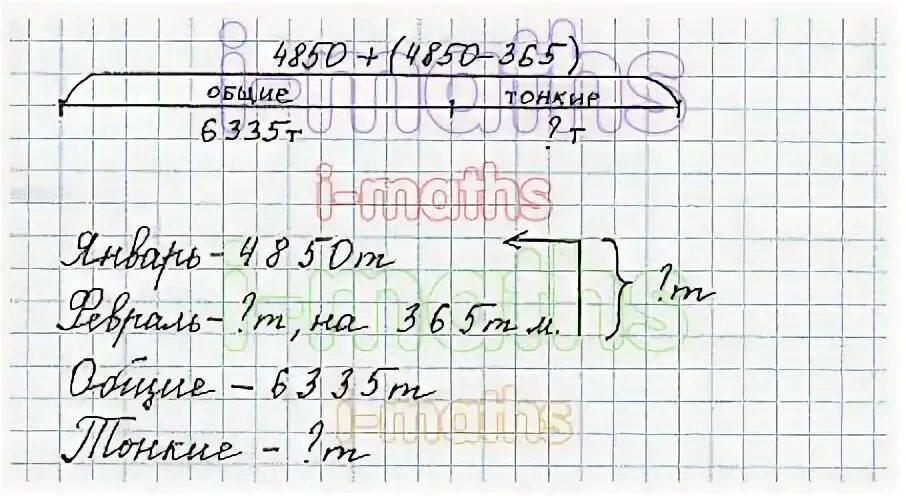 4850+(4850-365)
общие тонкие
6335т ?т
i-maths
i-maths
Январь - 4850т
?т
i-maths
Февраль - ?т, на 365т м.
Общие - 6335т
i-maths
Тонкие - ?т